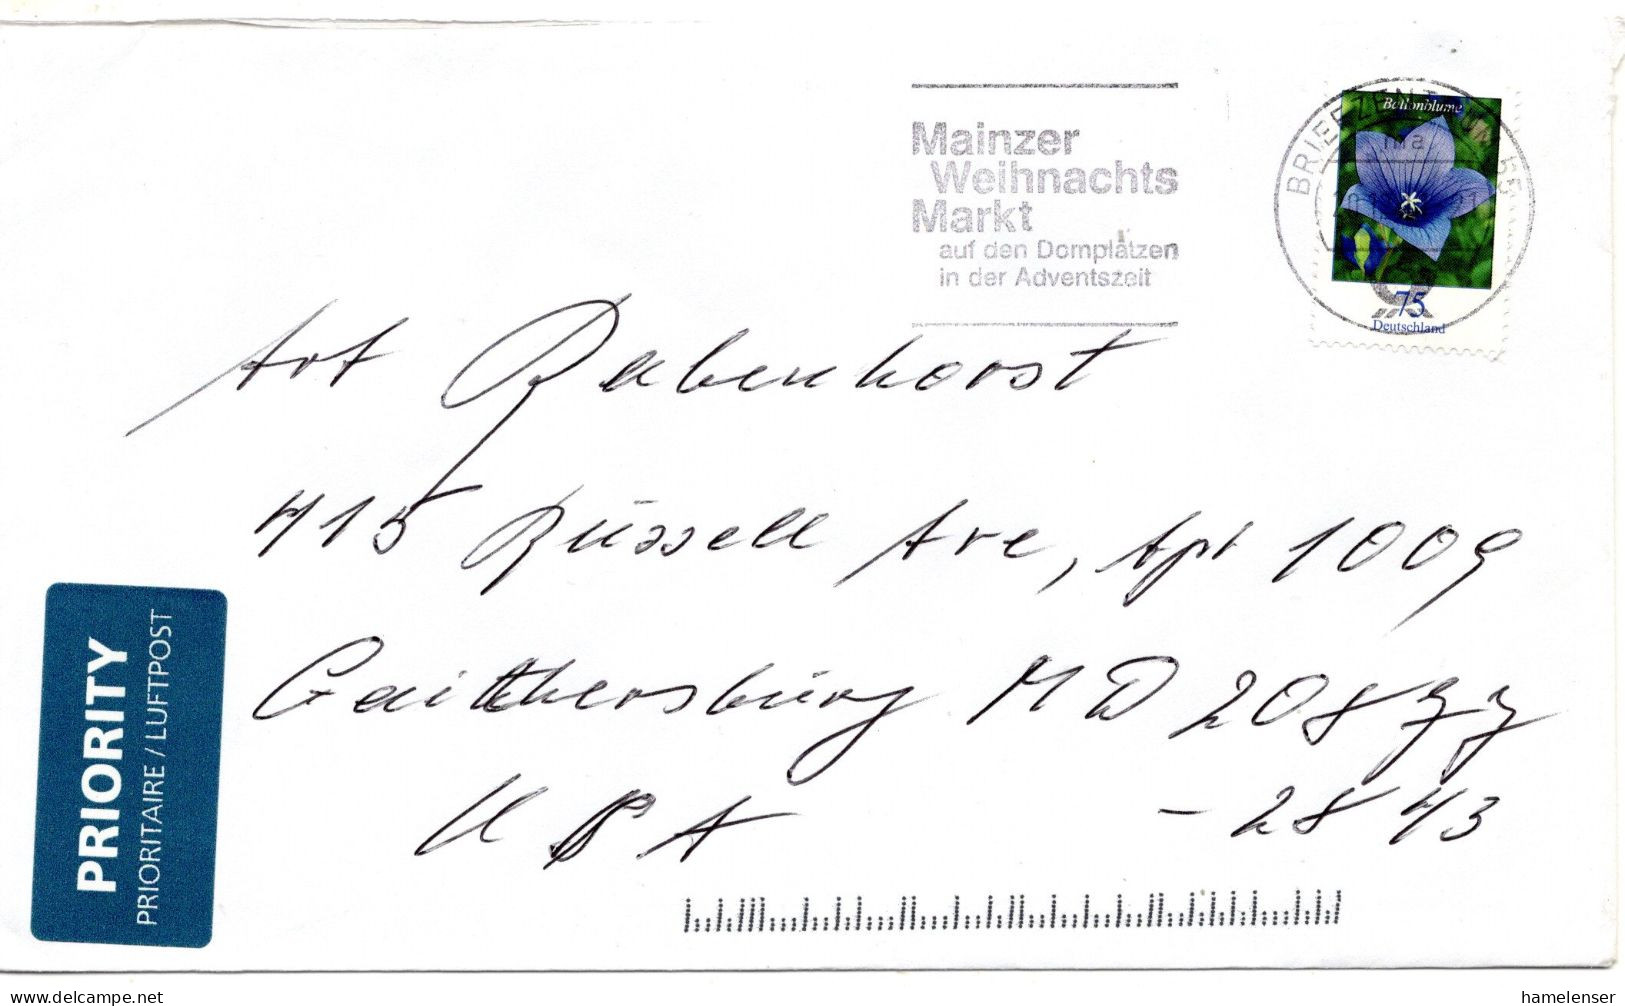 Mainzer
Weihnachts
Markt
auf den Domplätzen
in der Adventszeit
BRIEFZENTRUM 55
Ballonblume
75
Deutschland
Art Rabenhorst
415 Rüssell Ave, Apt 1009
Gaithersbürg MD 20877
USA - 2843
PRIORITY
PRIORITAIRE / LUFTPOST
www.delcampe.net
hamelenser